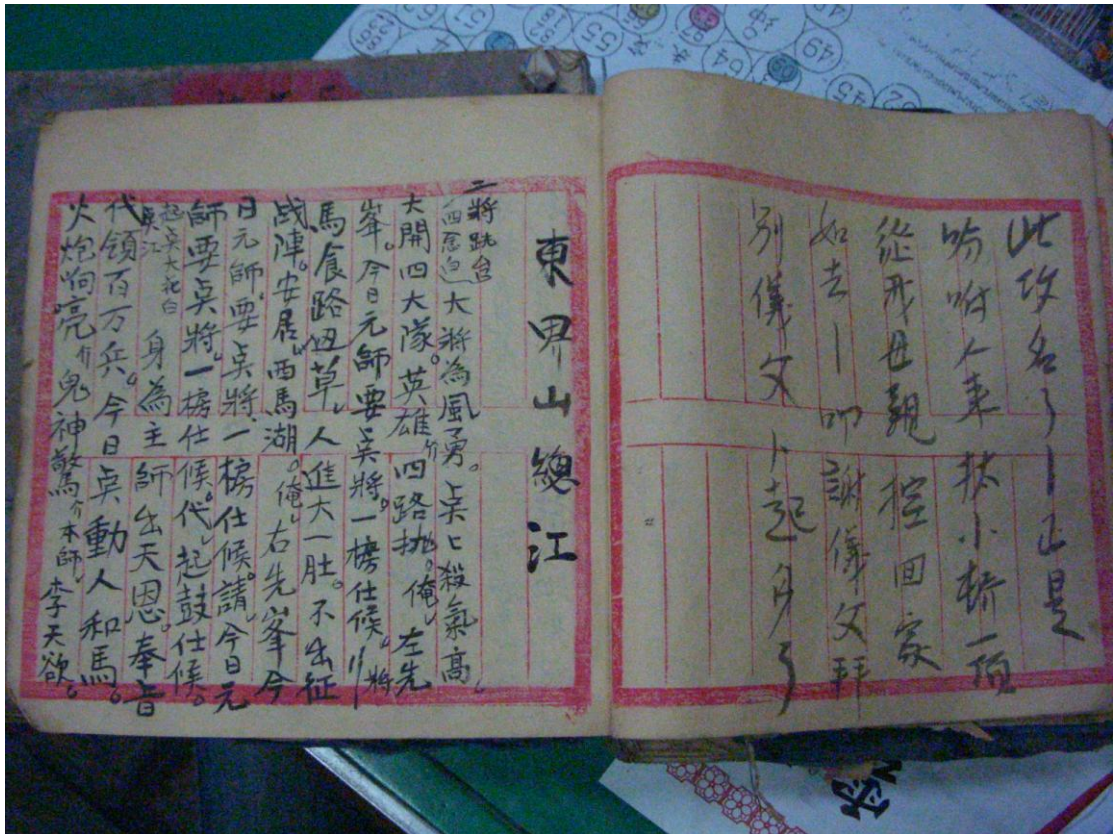 此攻名了丨正是
吩咐人来扶小轎一頂
從我母親 控回家
如去丨叩謝儀父拜
別儀父 卜起身了
東界山總江
二將跳台
大將為風勇。吳匕殺氣高。
大開四大隊。英雄 四路拋。俺 左先
峯。今日元師要吳將。一榜仕候。 將
馬食路边草。人進大一肚。不出征
战陣。安居西馬湖。俺 右先峯今
日元師要吳將一榜仕候。請 今日元
師要吳將。一榜仕候。代 起鼓仕候。
起吳大花白
吳江 身為主師出天恩。奉旨
代領百万兵。今日吳動人和馬。
火炮响亮 鬼神驚 本師 李天欲。